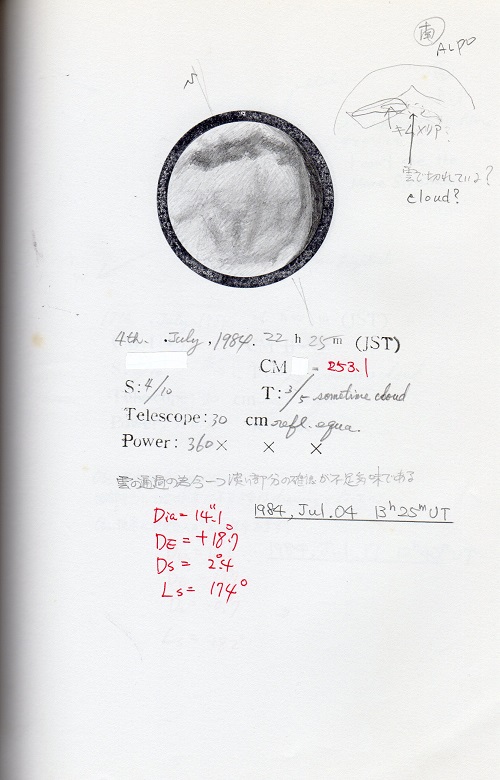 南
ALPO
キムメリア?
雲で切れている?
cloud?
N
4th. July, 1984. 22 h 25 m (JST)
CM = 253.1
S: 4/10 T: 3/5 sometime cloud
Telescope: 30 cm refl. equa.
Power: 360× × ×
雲の通過の為今一つ淡い部分の確認が不足気味である
1984, Jul. 04 13h25m UT
Dia = 14".1
DE = +18°.7
Ds = 2°.4
Ls = 174°